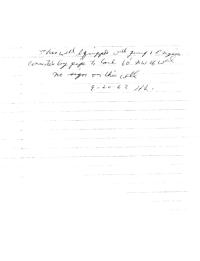 This well equipped with pump & engine
connected by pipe to tank 60' NW of well
no sign on this well
9-20-62